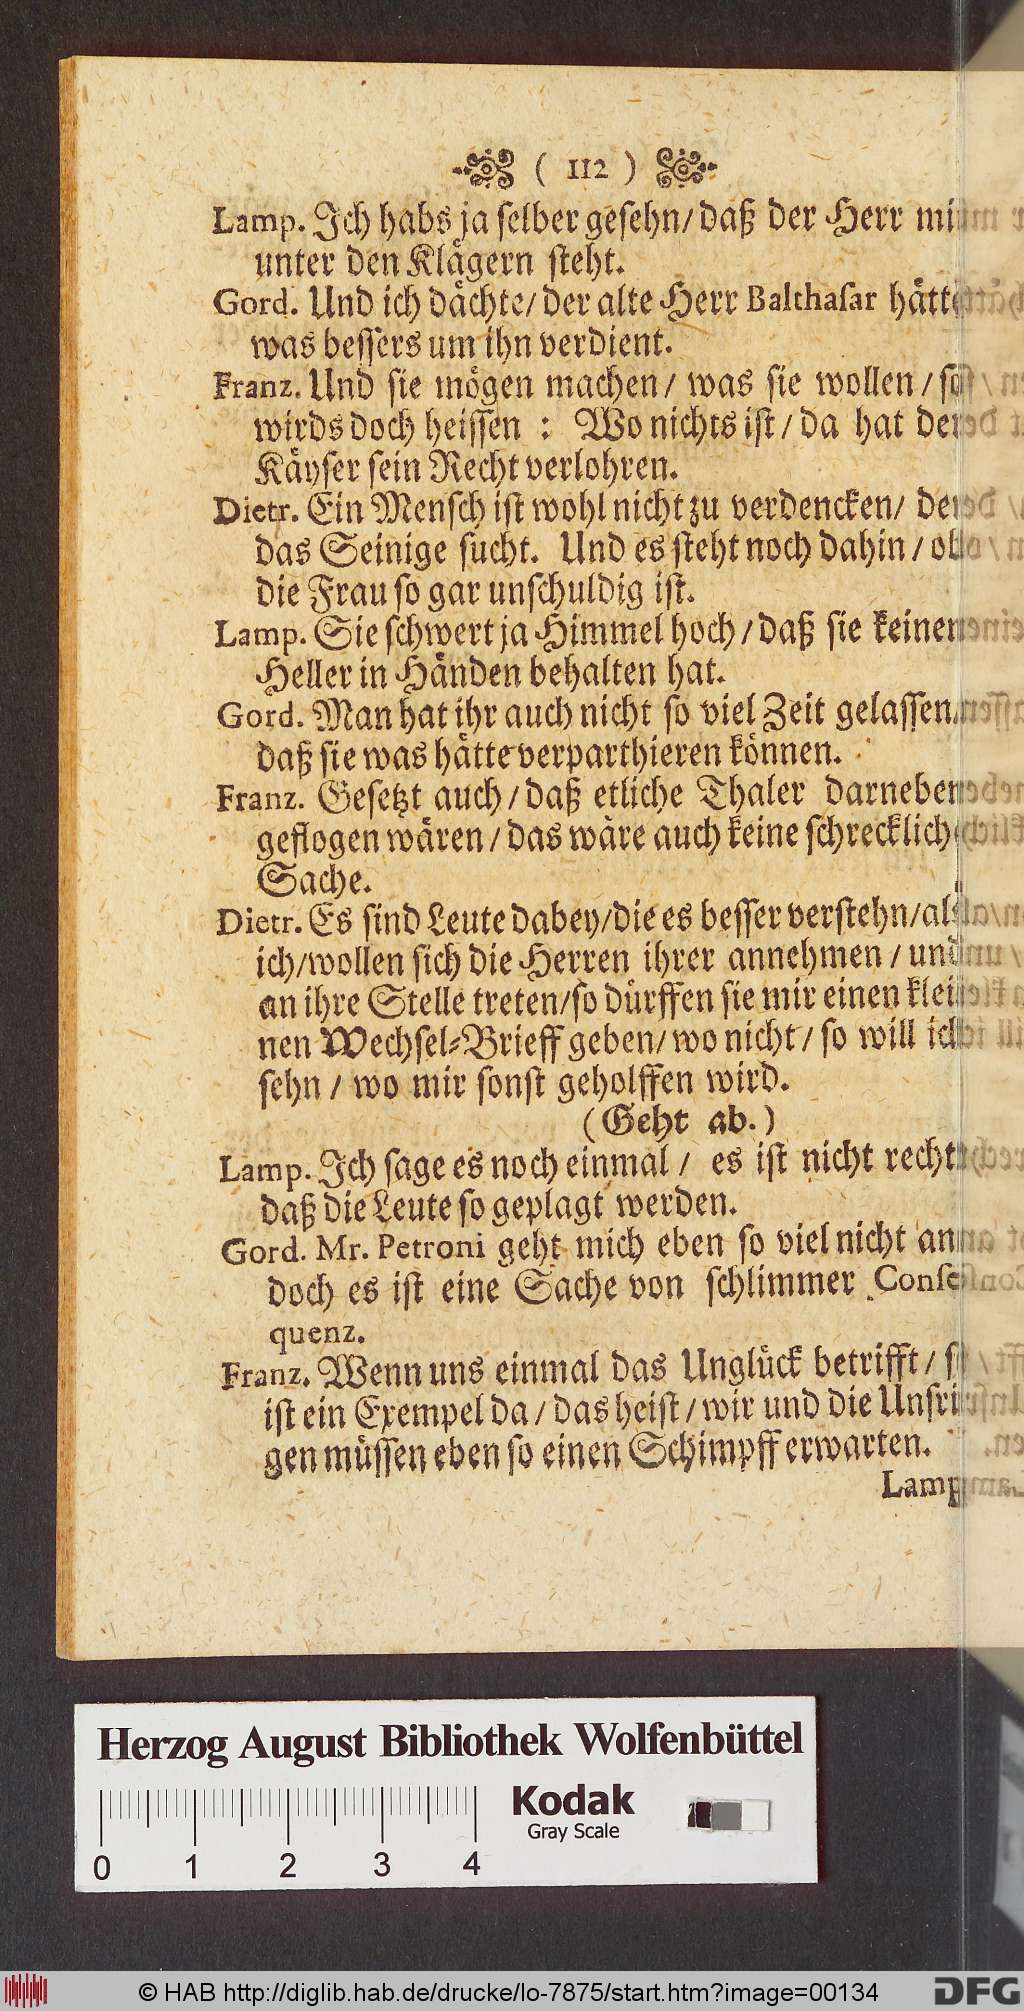 ( 112 )
Lamp. Ich habs ja selber gesehn/ daß der Herr mit
unter den Klägern steht.
Gord. Und ich dächte/ der alte Herr Balthasar hätte
was bessers um ihn verdient.
Franz. Und sie mögen machen/ was sie wollen/ so
wirds doch heissen : Wo nichts ist/ da hat der
Käyser sein Recht verlohren.
Dietr. Ein Mensch ist wohl nicht zu verdencken/ der
das Seinige sucht. Und es steht noch dahin/ ob
die Frau so gar unschuldig ist.
Lamp. Sie schwert ja Himmel hoch/ daß sie keinen
Heller in Händen behalten hat.
Gord. Man hat ihr auch nicht so viel Zeit gelassen/
daß sie was hätte verparthieren können.
Franz. Gesetzt auch/ daß etliche Thaler darneben
geflogen wären/ das wäre auch keine schreckliche
Sache.
Dietr. Es sind Leute dabey/ die es besser verstehn/ als
ich/ wollen sich die Herren ihrer annehmen/ und
an ihre Stelle treten/ so dürffen sie mir einen klei-
nen Wechsel-Brieff geben/ wo nicht/ so will ich
sehn/ wo mir sonst geholffen wird.
(Geht ab.)
Lamp. Ich sage es noch einmal/ es ist nicht recht
daß die Leute so geplagt werden.
Gord. Mr. Petroni geht mich eben so viel nicht an
doch es ist eine Sache von schlimmer Conse-
quenz.
Franz. Wenn uns einmal das Unglück betrifft/ so
ist ein Exempel da/ das heist/ wir und die Unsri-
gen müssen eben so einen Schimpff erwarten.
Lamp
Herzog August Bibliothek Wolfenbüttel
Kodak
Gray Scale
0 1 2 3 4
© HAB http://diglib.hab.de/drucke/lo-7875/start.htm?image=00134
DFG